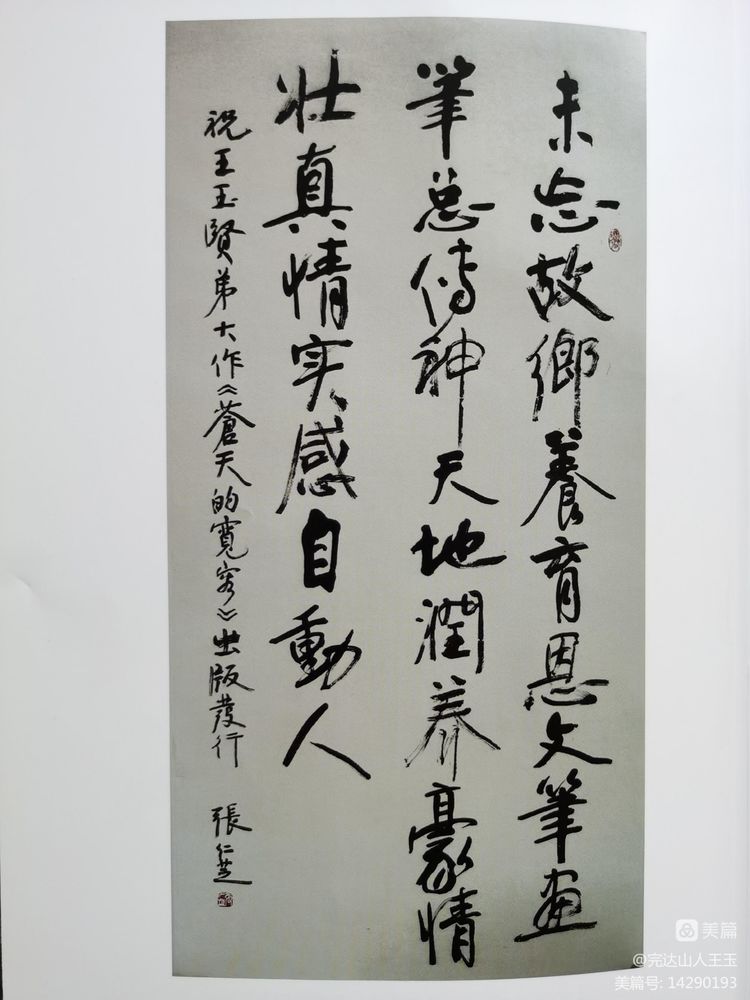 未忘故鄉養育恩文筆画
筆总传神天地潤养豪情
壮真情实感自動人
祝王玉賢弟大作《蒼天的寬容》出版发行
張仁芝
美篇
@完达山人王玉
美篇号: 14290193